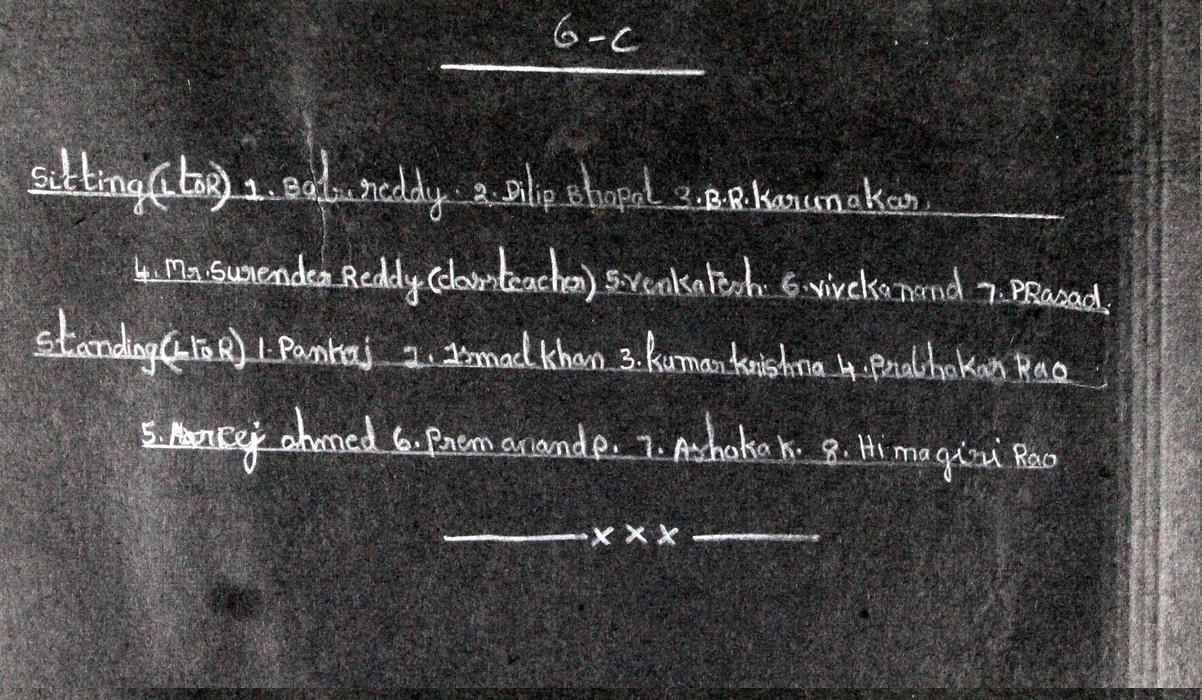 6-C
Sitting (L to R) 1. Babu reddy. 2. Dilip Bhopal 3. B.R. Karunakar.
4. Mr. Surender Reddy (classteacher) 5. Venkatesh. 6. vivekanand 7. PRasad.
Standing (L to R) 1. Pankaj 2. khan 3. kumar krishna 4. Prabhakar Rao
5. ahmed 6. Prem anand P. 7. Ashoka K. 8. Himagiri Rao
x x x